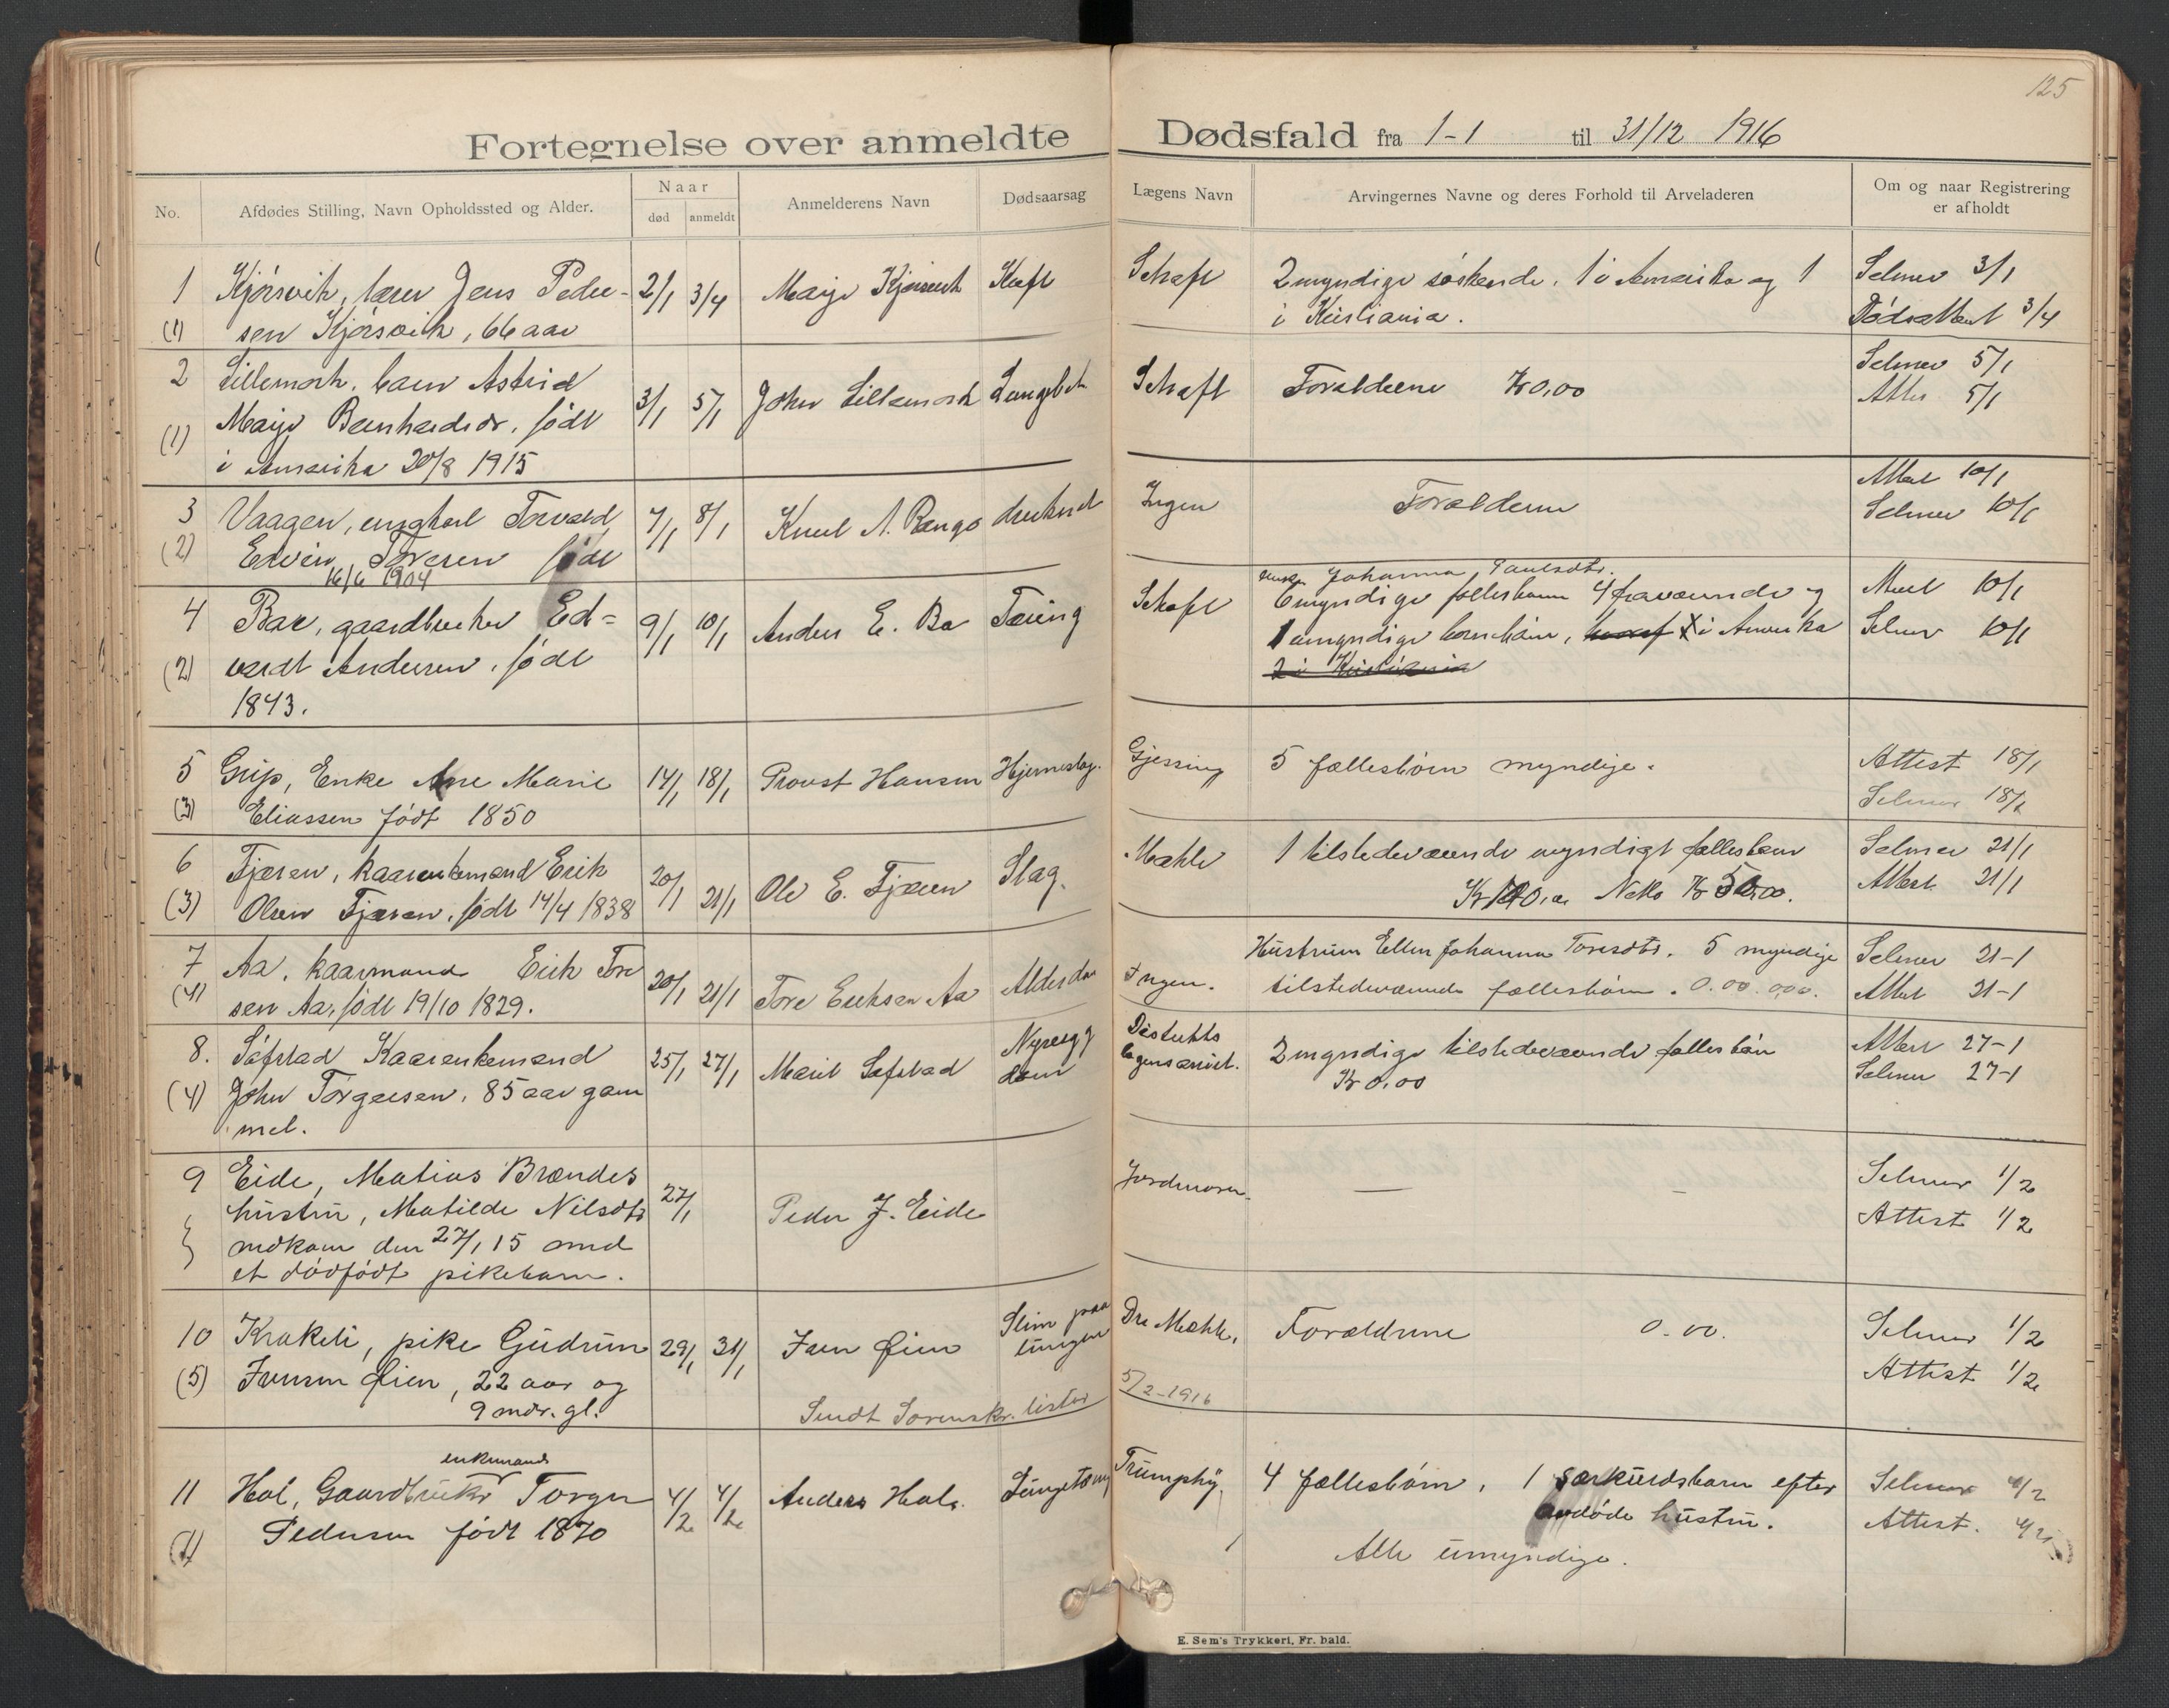 125
Fortegnelse over anmeldte Dødsfald fra 1-1 til 31/12 1916
No.
Afdødes Stilling, Navn Opholdssted og Alder.
Naar
død
anmeldt
Anmelderens Navn
Dødsaarsag
Lægens Navn
Arvingernes Navne og deres Forhold til Arveladeren
Om og naar Registrering
er afholdt
1
(1)
Kjørsvik, lærer Jens Peder-
sen Kjørsvik, 66 aar
2/1
3/4
Marie Kjørsvik
Kræft
Schaft
2 myndige søskende, 1 i Amerika og 1
i Kristiania.
Selmer 3/1
Dødsattest 3/4
2
(1)
Lillemork, barn Astrid
Marie Bernhardsdr. født
i Amerika 20/8 1915
3/1
5/1
John Lillemork
Lungebet
Schaft
Forældrene Kr 0,00
Selmer 5/1
Attes 5/1
3
(2)
Vaagen, ungkarl Torvald
Edvin Toresen født
16/6 1904
7/1
8/1
Knut A. Rango
druknet
Ingen
Forælderne
Attest 10/1
Selmer 10/1
4
(2)
Bae, gaardbruker Ed-
vardt Andersen, født
1843.
9/1
10/1
Anders E. Bo
Tæring
Schaft
enke Johanna Paulsdtr.
6 myndige fællesbarn 4 fraværende og
1 umyndige barnebarn, i Amerika
2 i Kristiania
Attest 10/1
Selmer 10/1
5
(3)
Grip, Enke Ane Marie
Eliassen født 1850
14/1
18/1
Provst Hansen
Hjerneslag.
Gjessing
5 fællesbørn myndige.
Attest 18/1
Selmer 18/1
6
(3)
Fjæren, kaarenkemand Erik
Olsen Fjæren, født 14/4 1838
20/1
21/1
Ole E. Fjæren
Slag.
Mæhle
1 tilstedeværende myndigt fællesbarn
Netto Kr 50,00.
Selmer 21/1
Attest 21/1
7
(4)
Aa, kaarmand Erik Tore
sen Aa, født 19/10 1829.
20/1
21/1
Tore Eriksen Aa
Alderdom
Ingen.
Hustruen Ellen Johanna Toresdtr. 5 myndige
tilstedeværende fællesbørn. 0.00
Selmer 21-1
Attest 21-1
8.
(4)
Søfstad Kaarenkemand
John Torgersen, 85 aar gam
mel.
25/1
27/1
Marit Søfstad
Nyresyg
dom
Distrikts
lægens assist.
2 myndige tilstedeværende fællesbørn
Kr 0,00
Attest 27-1
Selmer 27-1
9
Eide, Matias Brændes
hustru, Matilde Nilsdtr
nedkom den 27/1 15 med
et dødfødt pikebarn.
27/1
Peder J. Eide
Jordmoren
—
—
Selmer 1/2
Attest 1/2
10
(5)
Krakeli, pike Gudrun
Iversen Øien, 22 aar og
9 mdr. gl.
29/1
31/1
Iver Øien
Slim paa
lungen
Dr. Mæhle,
Forældrene 0.00.
Selmer 1/2
Attest 1/2
Sendt Sorenskr. lister 5/2-1916
11
enkemand
Hal, Gaardbruker Torger
Pedersen født 1870
4/2
4/2
Anders Hals
Lungetæring
Trumphy.
4 fællesbørn, 1 særkuldsbarn efter
avdøde hustru.
Alle umyndige.
Selmer 4/2
Attest. 4/2
E. Sem's Trykkeri, Fr. hald.